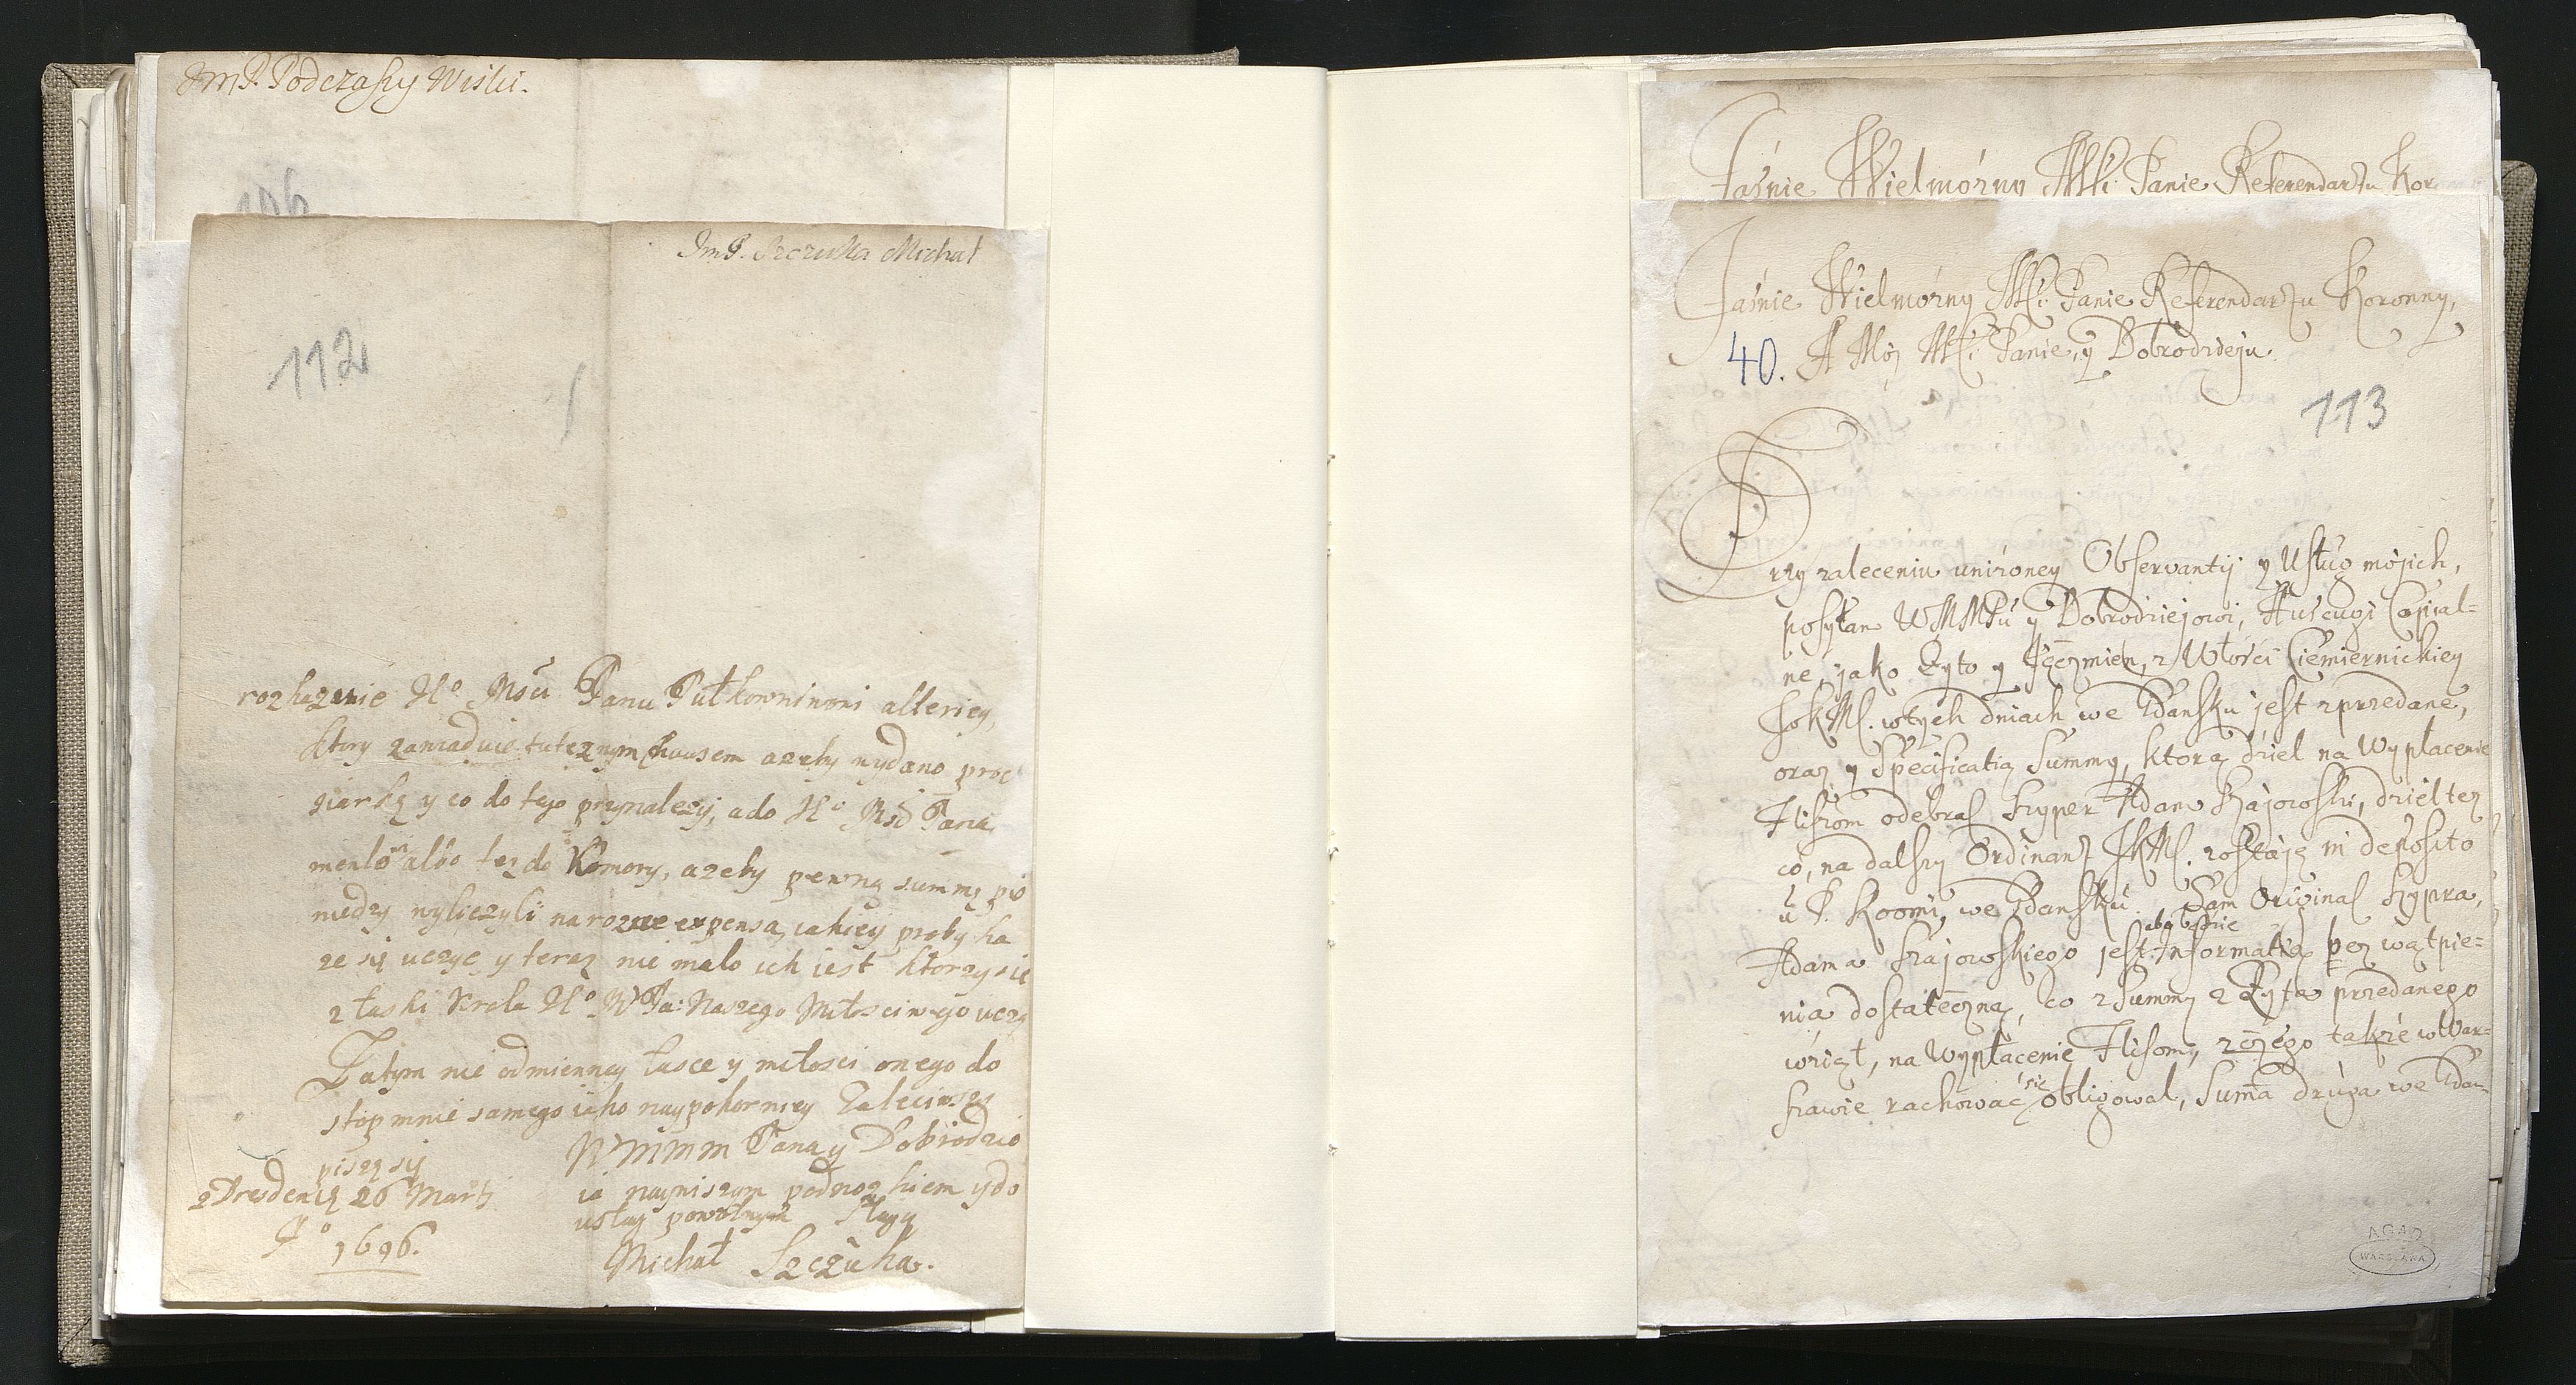 ImP. Podczaszy Wiski.
106
ImP. Szczuka Michał
112
rozkazanie Ko Msci Panu Pułkownikowi alteriey,
ktory zawiaduie tutecznym hausem azeby wydano proc
giarką y co do tego przynalezy, a do Ko Msci Pana
albo tez do Komory, azeby pewną summę pie
niedzy wyliczyli na rozne expensa, iakiey proby ka
ze się uczyc y teraz nie mało ich iest ktorzy sie
z łaski Krola Ko M Pa: Naszego Miłosciwego uczą
Zatym nie odmienney łasce y miłosci onego do
stop mnie samego iako naypokorniey Zaleciwszy
piszę się
WMMM Pana y Dobrodzie
z Dresdenu 26 Marti
ia nayniszym podnozkiem y do
usług powolnym Sługą
Ao 1696.
Michał Szczuka.
Jaśnie Wielmożny Mści Panie Referendarzu Kor
Jaśnie Wielmożny Mści Panie Referendarzu Koronny,
40. A Mój Mści Panie, y Dobrodzieju.
113
Przy zaleceniu uniżoney Observantij y Usług mojich,
posyłam WMMPu y Dobrodziejowi, Auscugi Copial=
ne, jako Żyto y Jęczmień, z Włości Ciemiernickiey
JokM. w tych dniach we Gdańsku jest zprzedane,
oraz y Specificatią Summy, ktorą dziel na Wypłacenie
Flisom odebral Szyper Adam Szajowski, dziel tez
co, na dalszy Ordinans JKM. zostaję in deposito
u P. Koomi, we Gdansku. Sam Original Szypra,
Adama Szajowskiego jest Informatią bez wątpie=
nia dostateczną, co z Summy z Żyta przedanego
wziąt, na Wypłacenie Flisom, z czego także w War=
szawie rachować się obligowal, Suma druga we Gdan=
AGAD
WARSZAWA